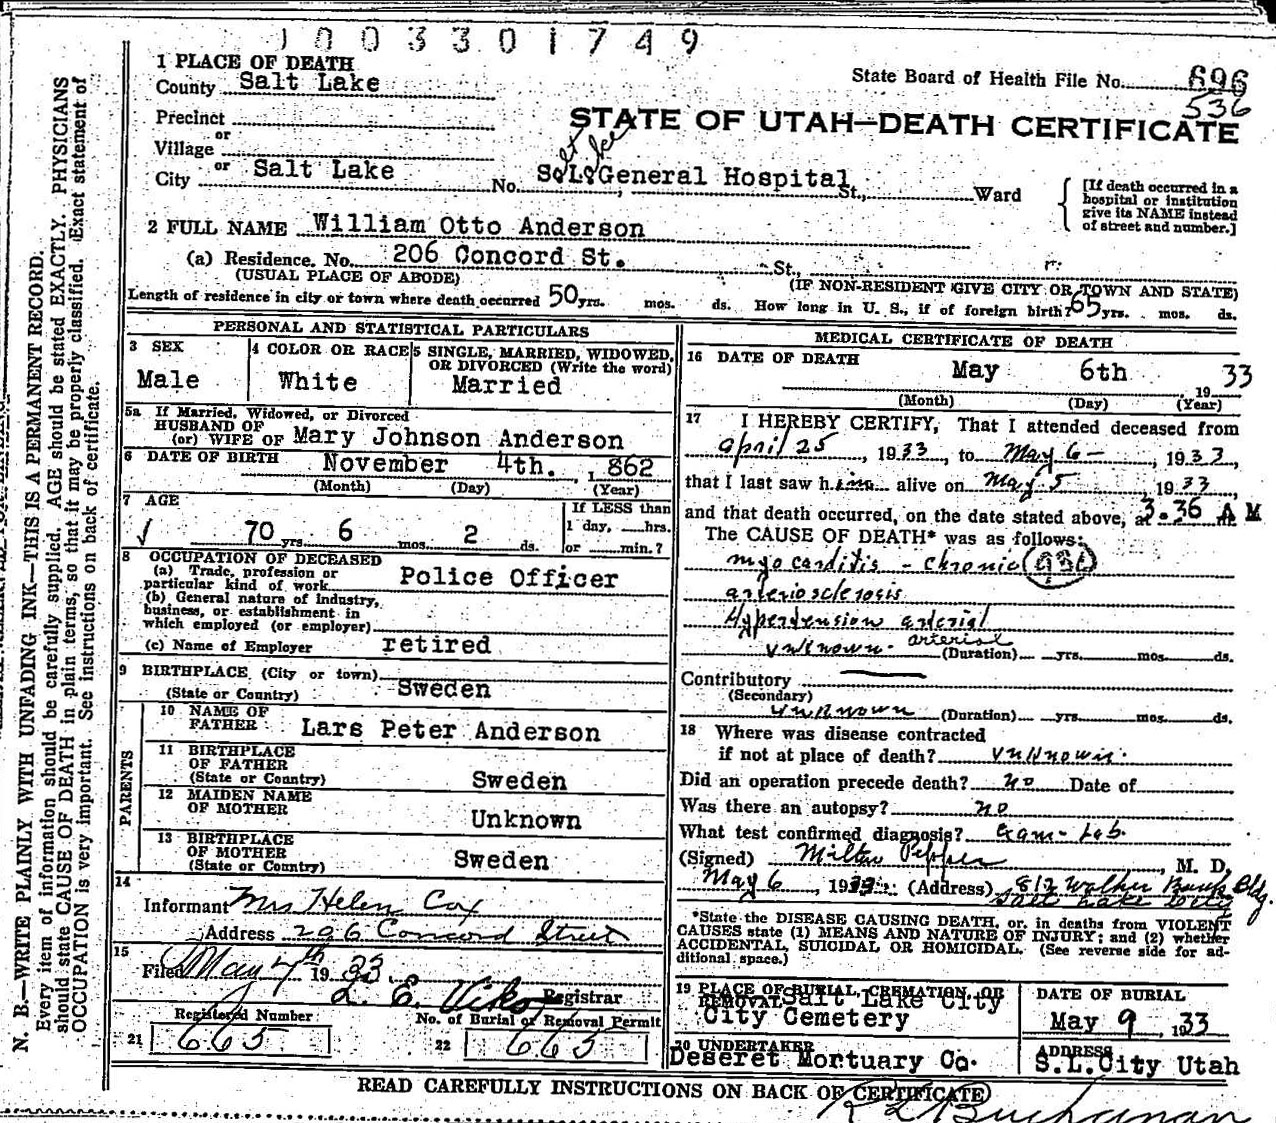 1003301749
1 PLACE OF DEATH
County Salt Lake
State Board of Health File No. 696
536
Precinct
or
Village
or
City Salt Lake
STATE OF UTAH—DEATH CERTIFICATE
No. S.L. General Hospital St., Ward
[If death occurred in a hospital or institution give its NAME instead of street and number.]
2 FULL NAME William Otto Anderson
(a) Residence. No. 206 Concord St. St.,
(USUAL PLACE OF ABODE) (IF NON-RESIDENT GIVE CITY OR TOWN AND STATE)
Length of residence in city or town where death occurred 50 yrs. mos. ds. How long in U. S., if of foreign birth? 65 yrs. mos. ds.
PERSONAL AND STATISTICAL PARTICULARS
3 SEX
Male
4 COLOR OR RACE
White
5 SINGLE, MARRIED, WIDOWED, OR DIVORCED (Write the word)
Married
5a If Married, Widowed, or Divorced
HUSBAND OF
(or) WIFE OF Mary Johnson Anderson
6 DATE OF BIRTH November 4th. , 1862
(Month) (Day) (Year)
7 AGE
70 yrs. 6 mos. 2 ds.
If LESS than
1 day, hrs.
or min.?
8 OCCUPATION OF DECEASED
(a) Trade, profession or
particular kind of work Police Officer
(b) General nature of industry,
business, or establishment in
which employed (or employer)
(c) Name of Employer retired
9 BIRTHPLACE (City or town)
(State or Country) Sweden
PARENTS
10 NAME OF
FATHER Lars Peter Anderson
11 BIRTHPLACE
OF FATHER
(State or Country) Sweden
12 MAIDEN NAME
OF MOTHER Unknown
13 BIRTHPLACE
OF MOTHER
(State or Country) Sweden
14
Informant Mrs Helen Cox
Address 206 Concord Street
15
Filed May 7th 1933
L. E. Viko Registrar
Registered Number
21 665
No. of Burial or Removal Permit
22 663
MEDICAL CERTIFICATE OF DEATH
16 DATE OF DEATH
May 6th 1933
(Month) (Day) (Year)
17 I HEREBY CERTIFY, That I attended deceased from
April 25, 1933, to May 6 -, 1933,
that I last saw him alive on May 5, 1933,
and that death occurred, on the date stated above, at 3.36 A M
The CAUSE OF DEATH* was as follows:
myocarditis - chronic 93c
arteriosclerosis
Hypertension arterial
arterial
unknown. (Duration) yrs. mos. ds.
Contributory
(Secondary)
unknown (Duration) yrs. mos. ds.
18 Where was disease contracted
if not at place of death? unknown.
Did an operation precede death? no Date of
Was there an autopsy? no
What test confirmed diagnosis? Exam - Lab.
(Signed) Milton Pepper, M. D.
May 6, 1933 (Address) 812 Walker Bank Bldg.
Salt Lake City
*State the DISEASE CAUSING DEATH, or, in deaths from VIOLENT
CAUSES state (1) MEANS AND NATURE OF INJURY; and (2) whether
ACCIDENTAL, SUICIDAL OR HOMICIDAL. (See reverse side for ad-
ditional space.)
19 PLACE OF BURIAL, CREMATION, OR
REMOVAL Salt Lake City
City Cemetery
DATE OF BURIAL
May 9, 1933
20 UNDERTAKER
Deseret Mortuary Co.
ADDRESS
S.L.City Utah
READ CAREFULLY INSTRUCTIONS ON BACK OF CERTIFICATE
R L Buchanan
N. B.—WRITE PLAINLY WITH UNFADING INK—THIS IS A PERMANENT RECORD.
Every item of information should be carefully supplied. AGE should be stated EXACTLY. PHYSICIANS
should state CAUSE OF DEATH in plain terms, so that it may be properly classified. Exact statement of
OCCUPATION is very important. See instructions on back of certificate.